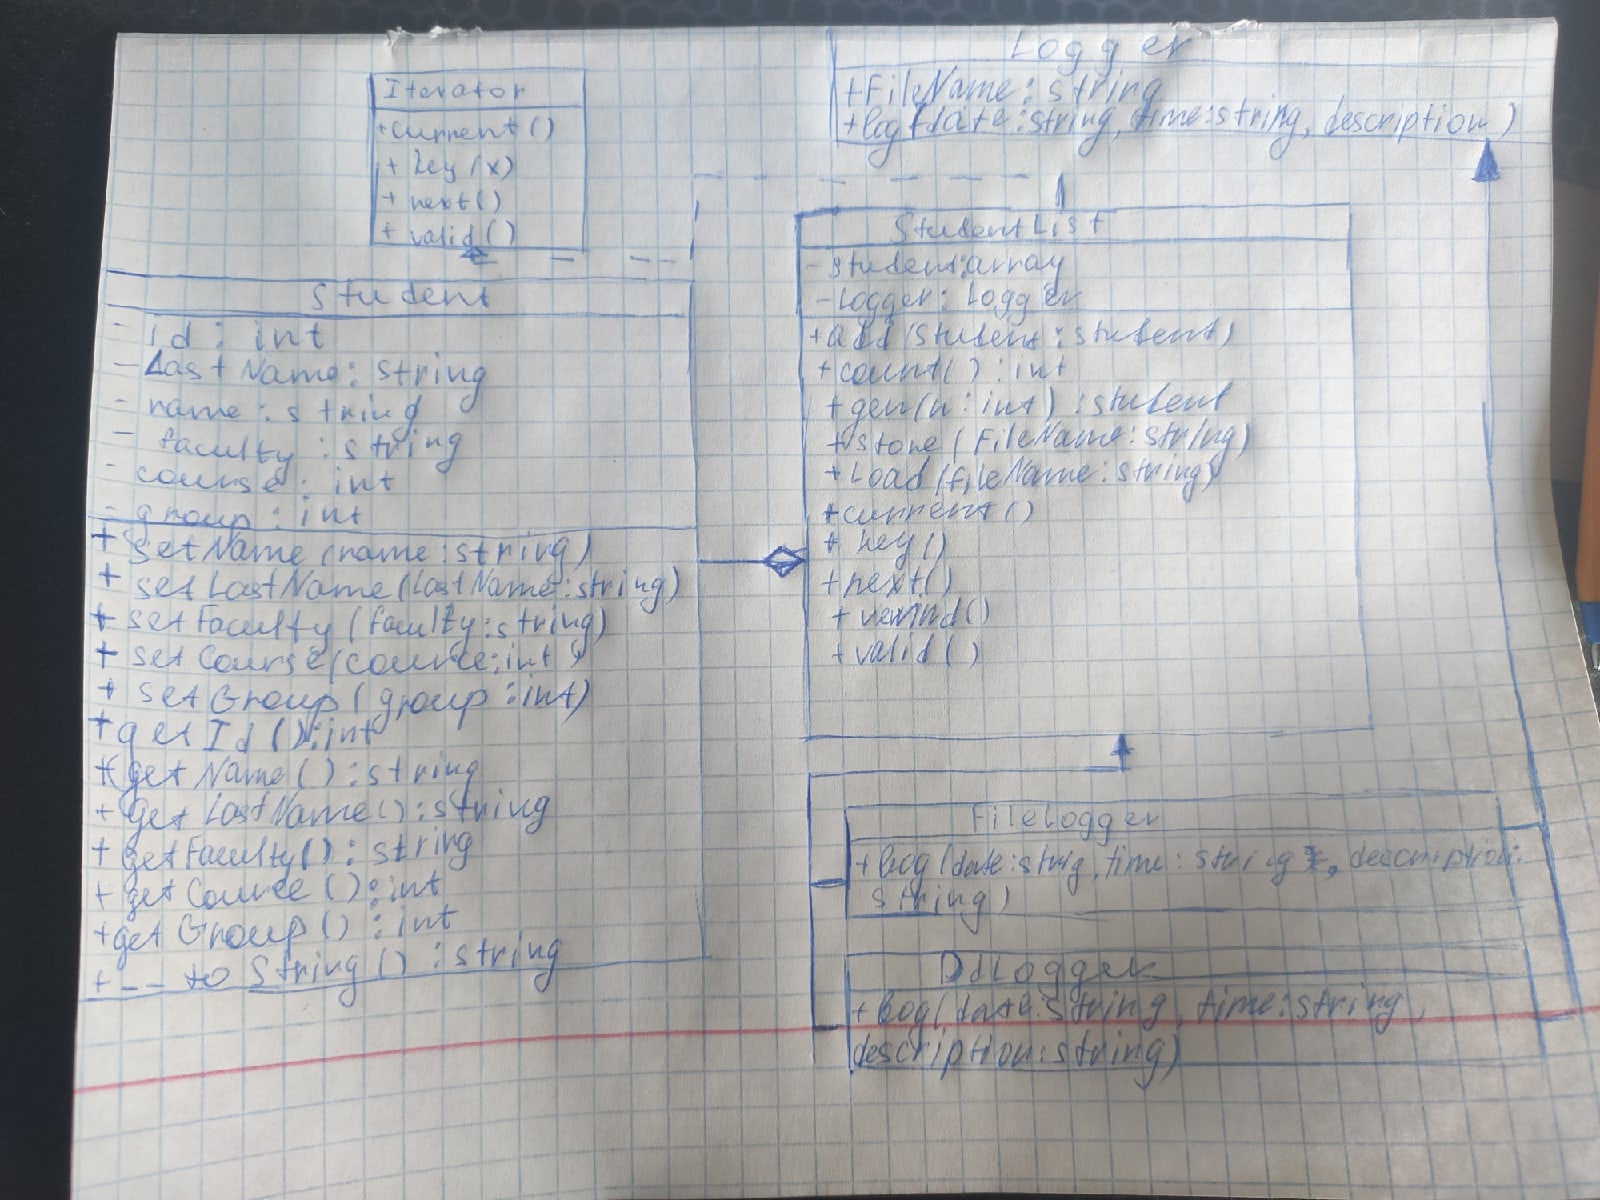 Iterator
+current()
+ key(x)
+ next()
+ valid()
Logger
+FileName: string
+log(date:string, time:string, description)
Student
- id: int
- LastName: string
- name: string
- faculty: string
- course: int
- group: int
+ setName(name:string)
+ setLastName(LastName:string)
+ setFaculty(faculty:string)
+ setCourse(cource:int)
+ setGroup(group:int)
+getId():int
+ getName():string
+ getLastName():string
+ getFaculty():string
+ getCource():int
+getGroup(): int
+ -- to String(): string
StudentList
- student:array
- Logger: Logger
+add(student:student)
+count(): int
+gen(n:int):student
+store(FileName:string)
+Load(fileName:string)
+current()
+ key()
+next()
+ rewind()
+valid()
FileLogger
+log(date:strig, time:string, description:
string)
DdLogger
+log(date:string, time:string,
description:string)